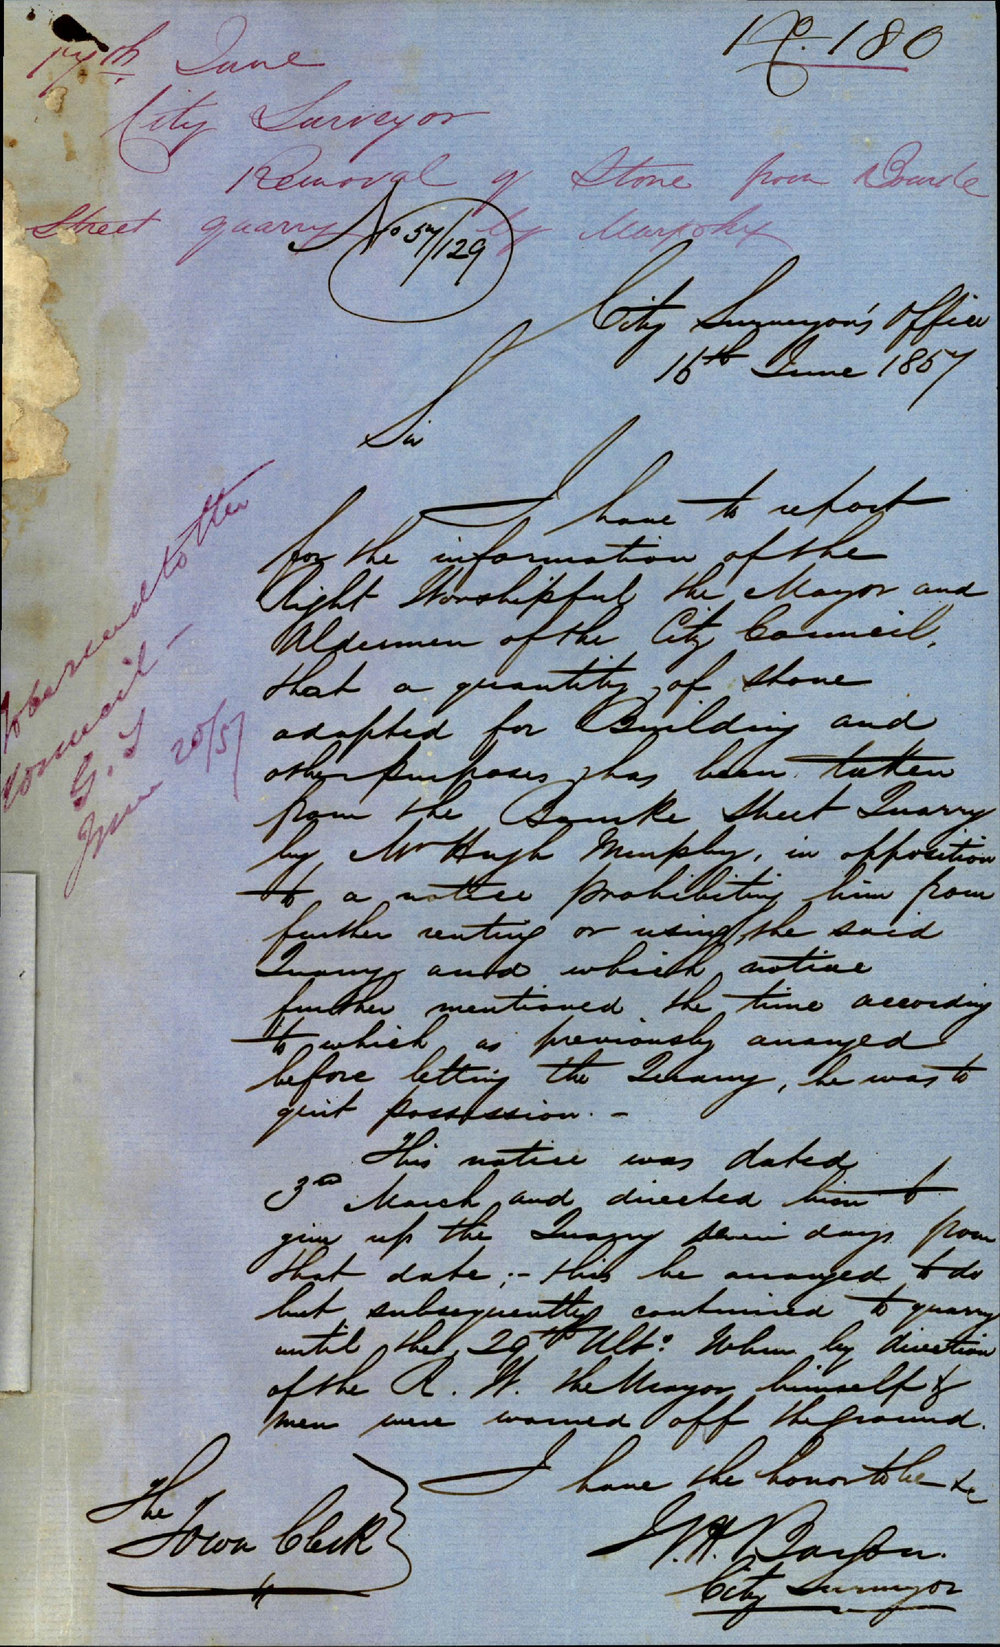 No. 180
17th. June
City Surveyor
Removal of Stone from Bourke
Street quarry by Murphy
No 57/129
City Surveyor's Office
16th June 1857
Sir
I have to report
for the information of the
Right Worshipful the Mayor and
Aldermen of the City Council,
that a quantity of stone
adapted for Building and
other purposes, has been taken
from the Bourke Street Quarry
by Mr Hugh Murphy, in opposition
to a notice prohibiting him from
further renting or using the said
Quarry and which notice
further mentioned the time according
to which as previously arranged
before letting the Quarry, he was to
quit possession. -
This notice was dated
3rd March and directed him to
give up the Quarry seven days from
that date; - this he arranged to do
but subsequently continued to quarry
until the 29th Ulto: When by direction
of the R. W. the Mayor himself &
men were warned off the ground.
I have the honor to be &c
City Surveyor
The
Town Clerk
To be read to the
Council -
G. S
June 20/57